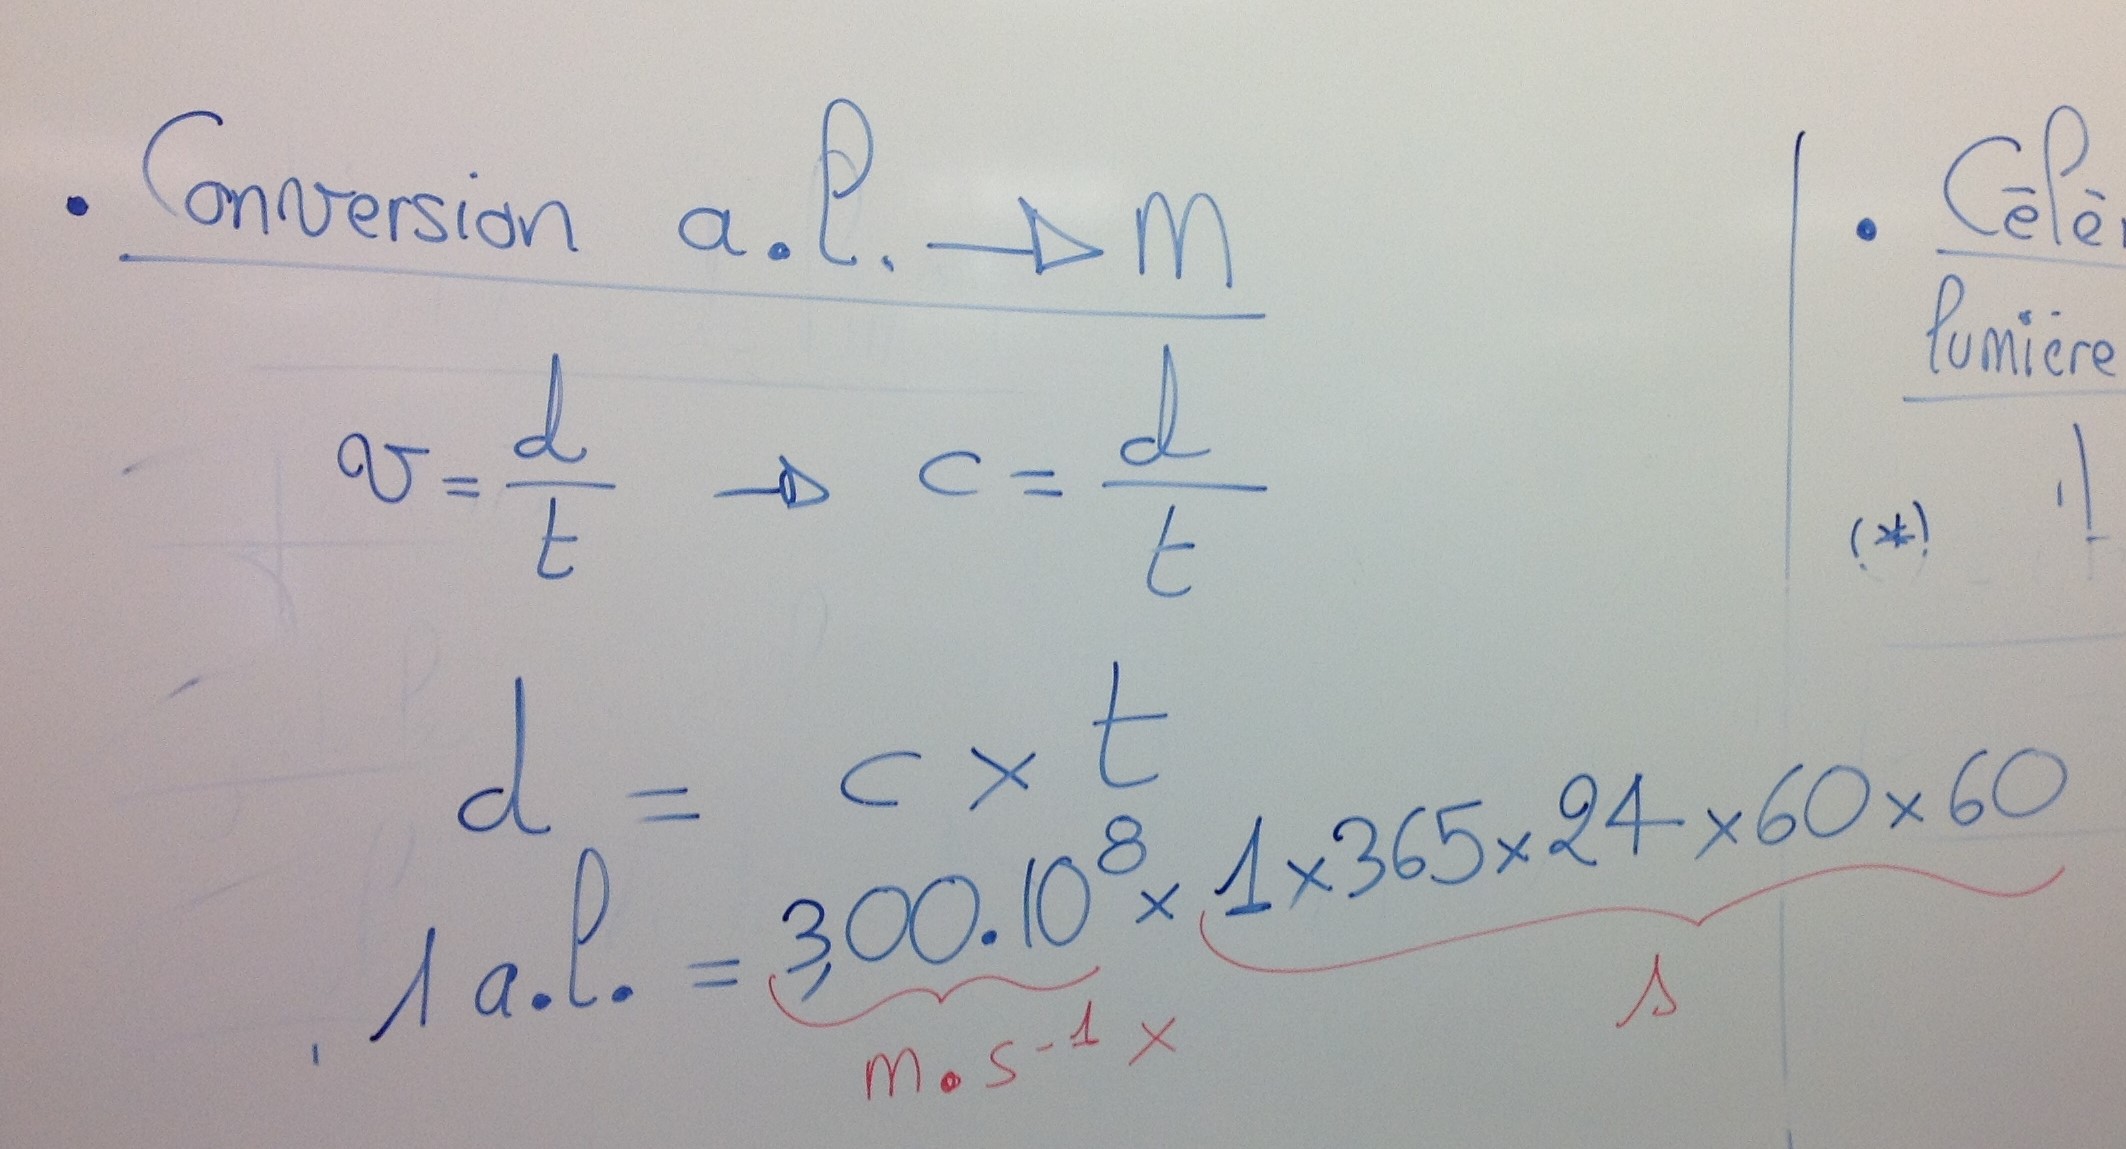 • Conversion a.l. → m
v = d/t → c = d/t
d = c × t
1 a.l. = 3,00.10⁸ × 1×365×24×60×60
m.s⁻¹ × s
lumière
(*)